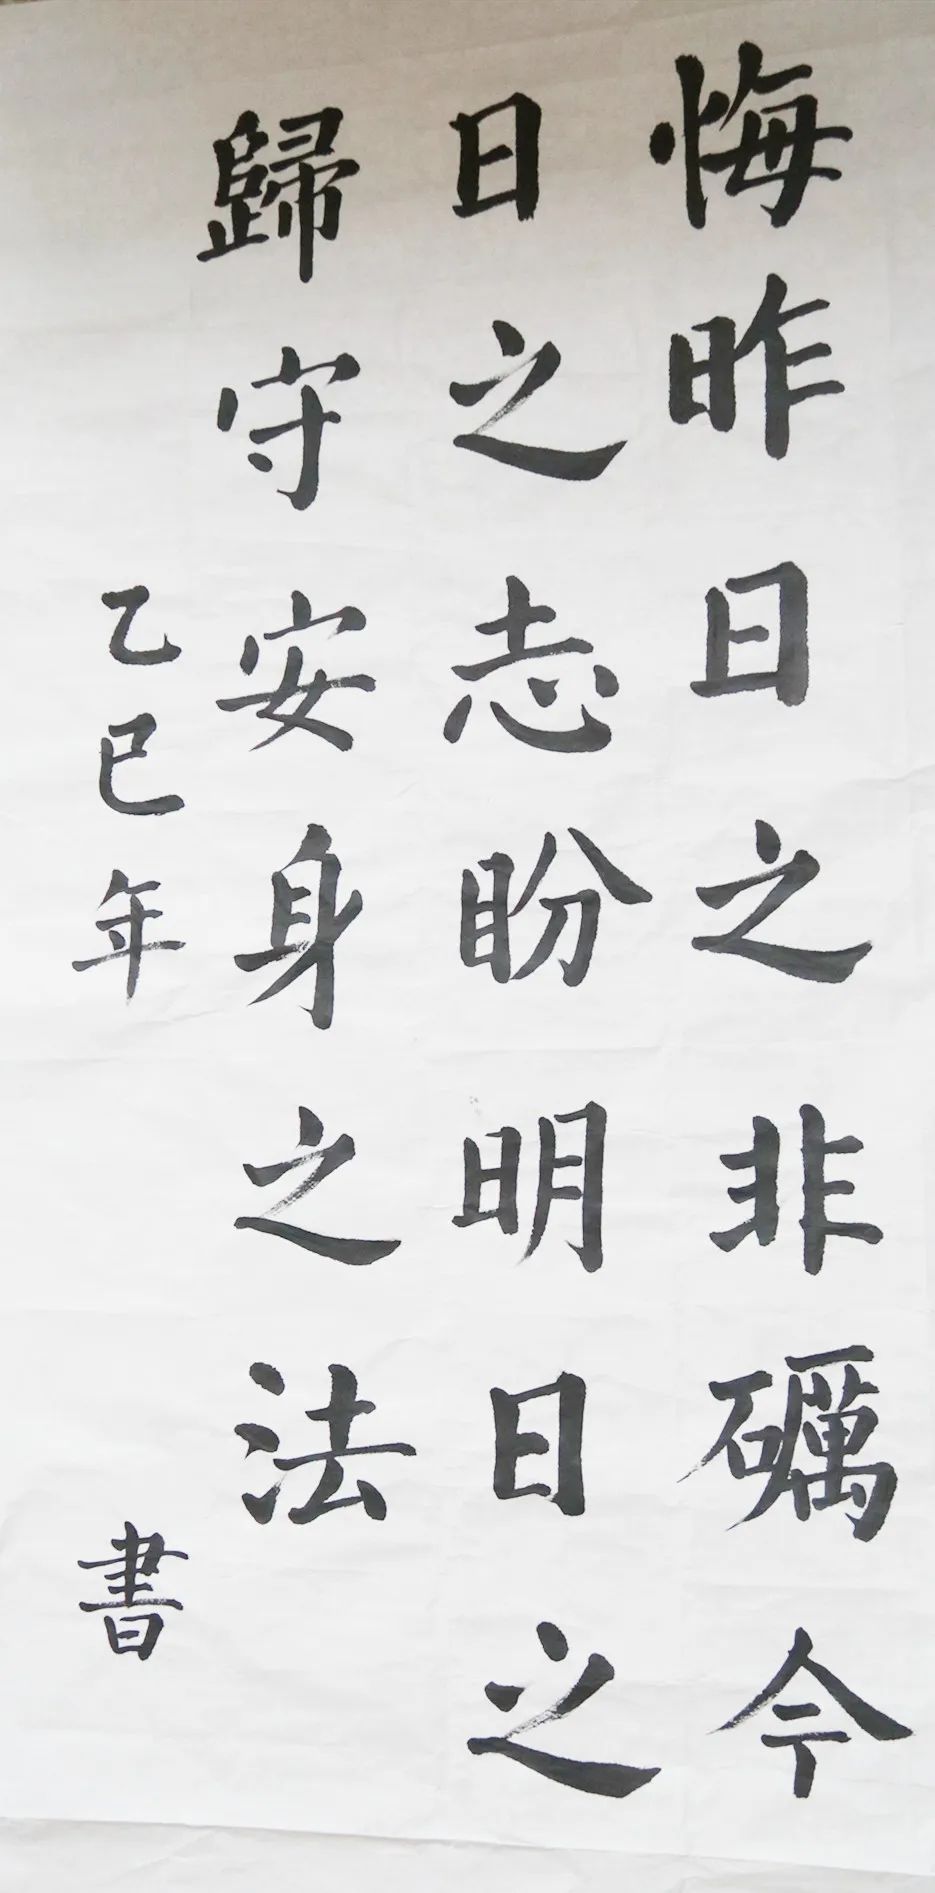 悔昨日之非礪今
日之志盼明日之
歸守安身之法
乙巳年 書